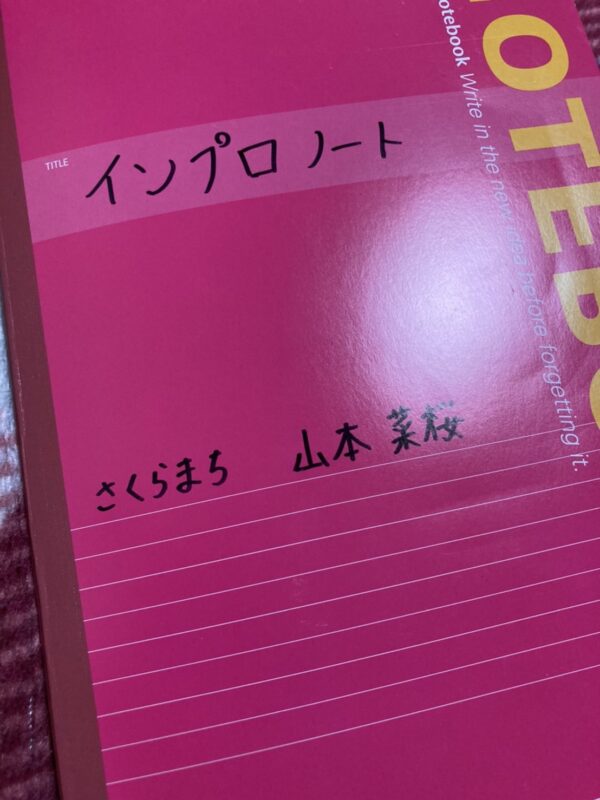 otebook Write in the new idea before forgetting it.
TITLE
インプロ ノート
さくらまち 山本 菜桜